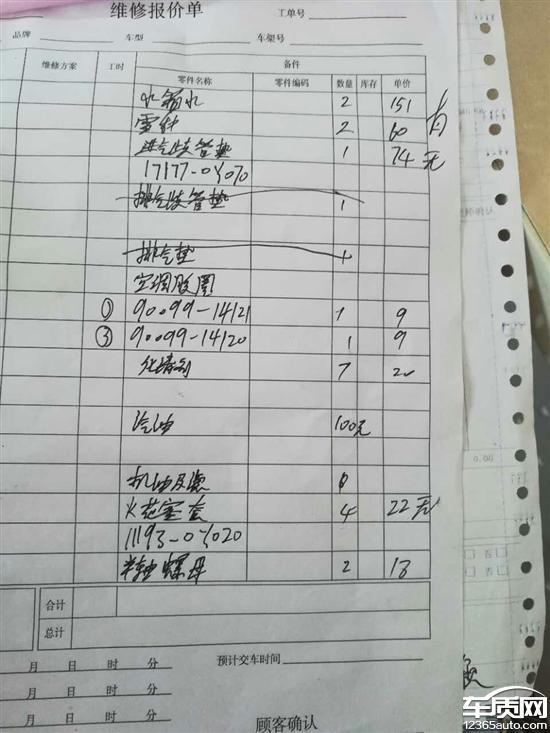 维修报价单 工单号
品牌 车型 车架号
维修方案 工时 备件
零件名称 零件编码 数量 库存 单价
水箱水 2 151
雪种 2 60 有
进气歧管垫 1 74 无
17177-0Y070
排气歧管垫 1
排气垫 1
空调胶圈
① 90099-14121 1 9
③ 90099-14120 1 9
化清剂 7 20
汽油 100元
机油及滤
火花塞套 4 22 无
11193-0Y020
半轴螺母 2 13
合计
总计
月 日 时 分 预计交车时间
月 日 时 分
月 日 时 分
顾客确认
0.00
否
否
车质网
12365auto.com